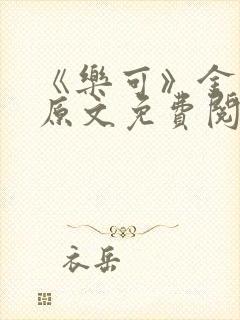 《樂可》金
原文免費閱
衣岳